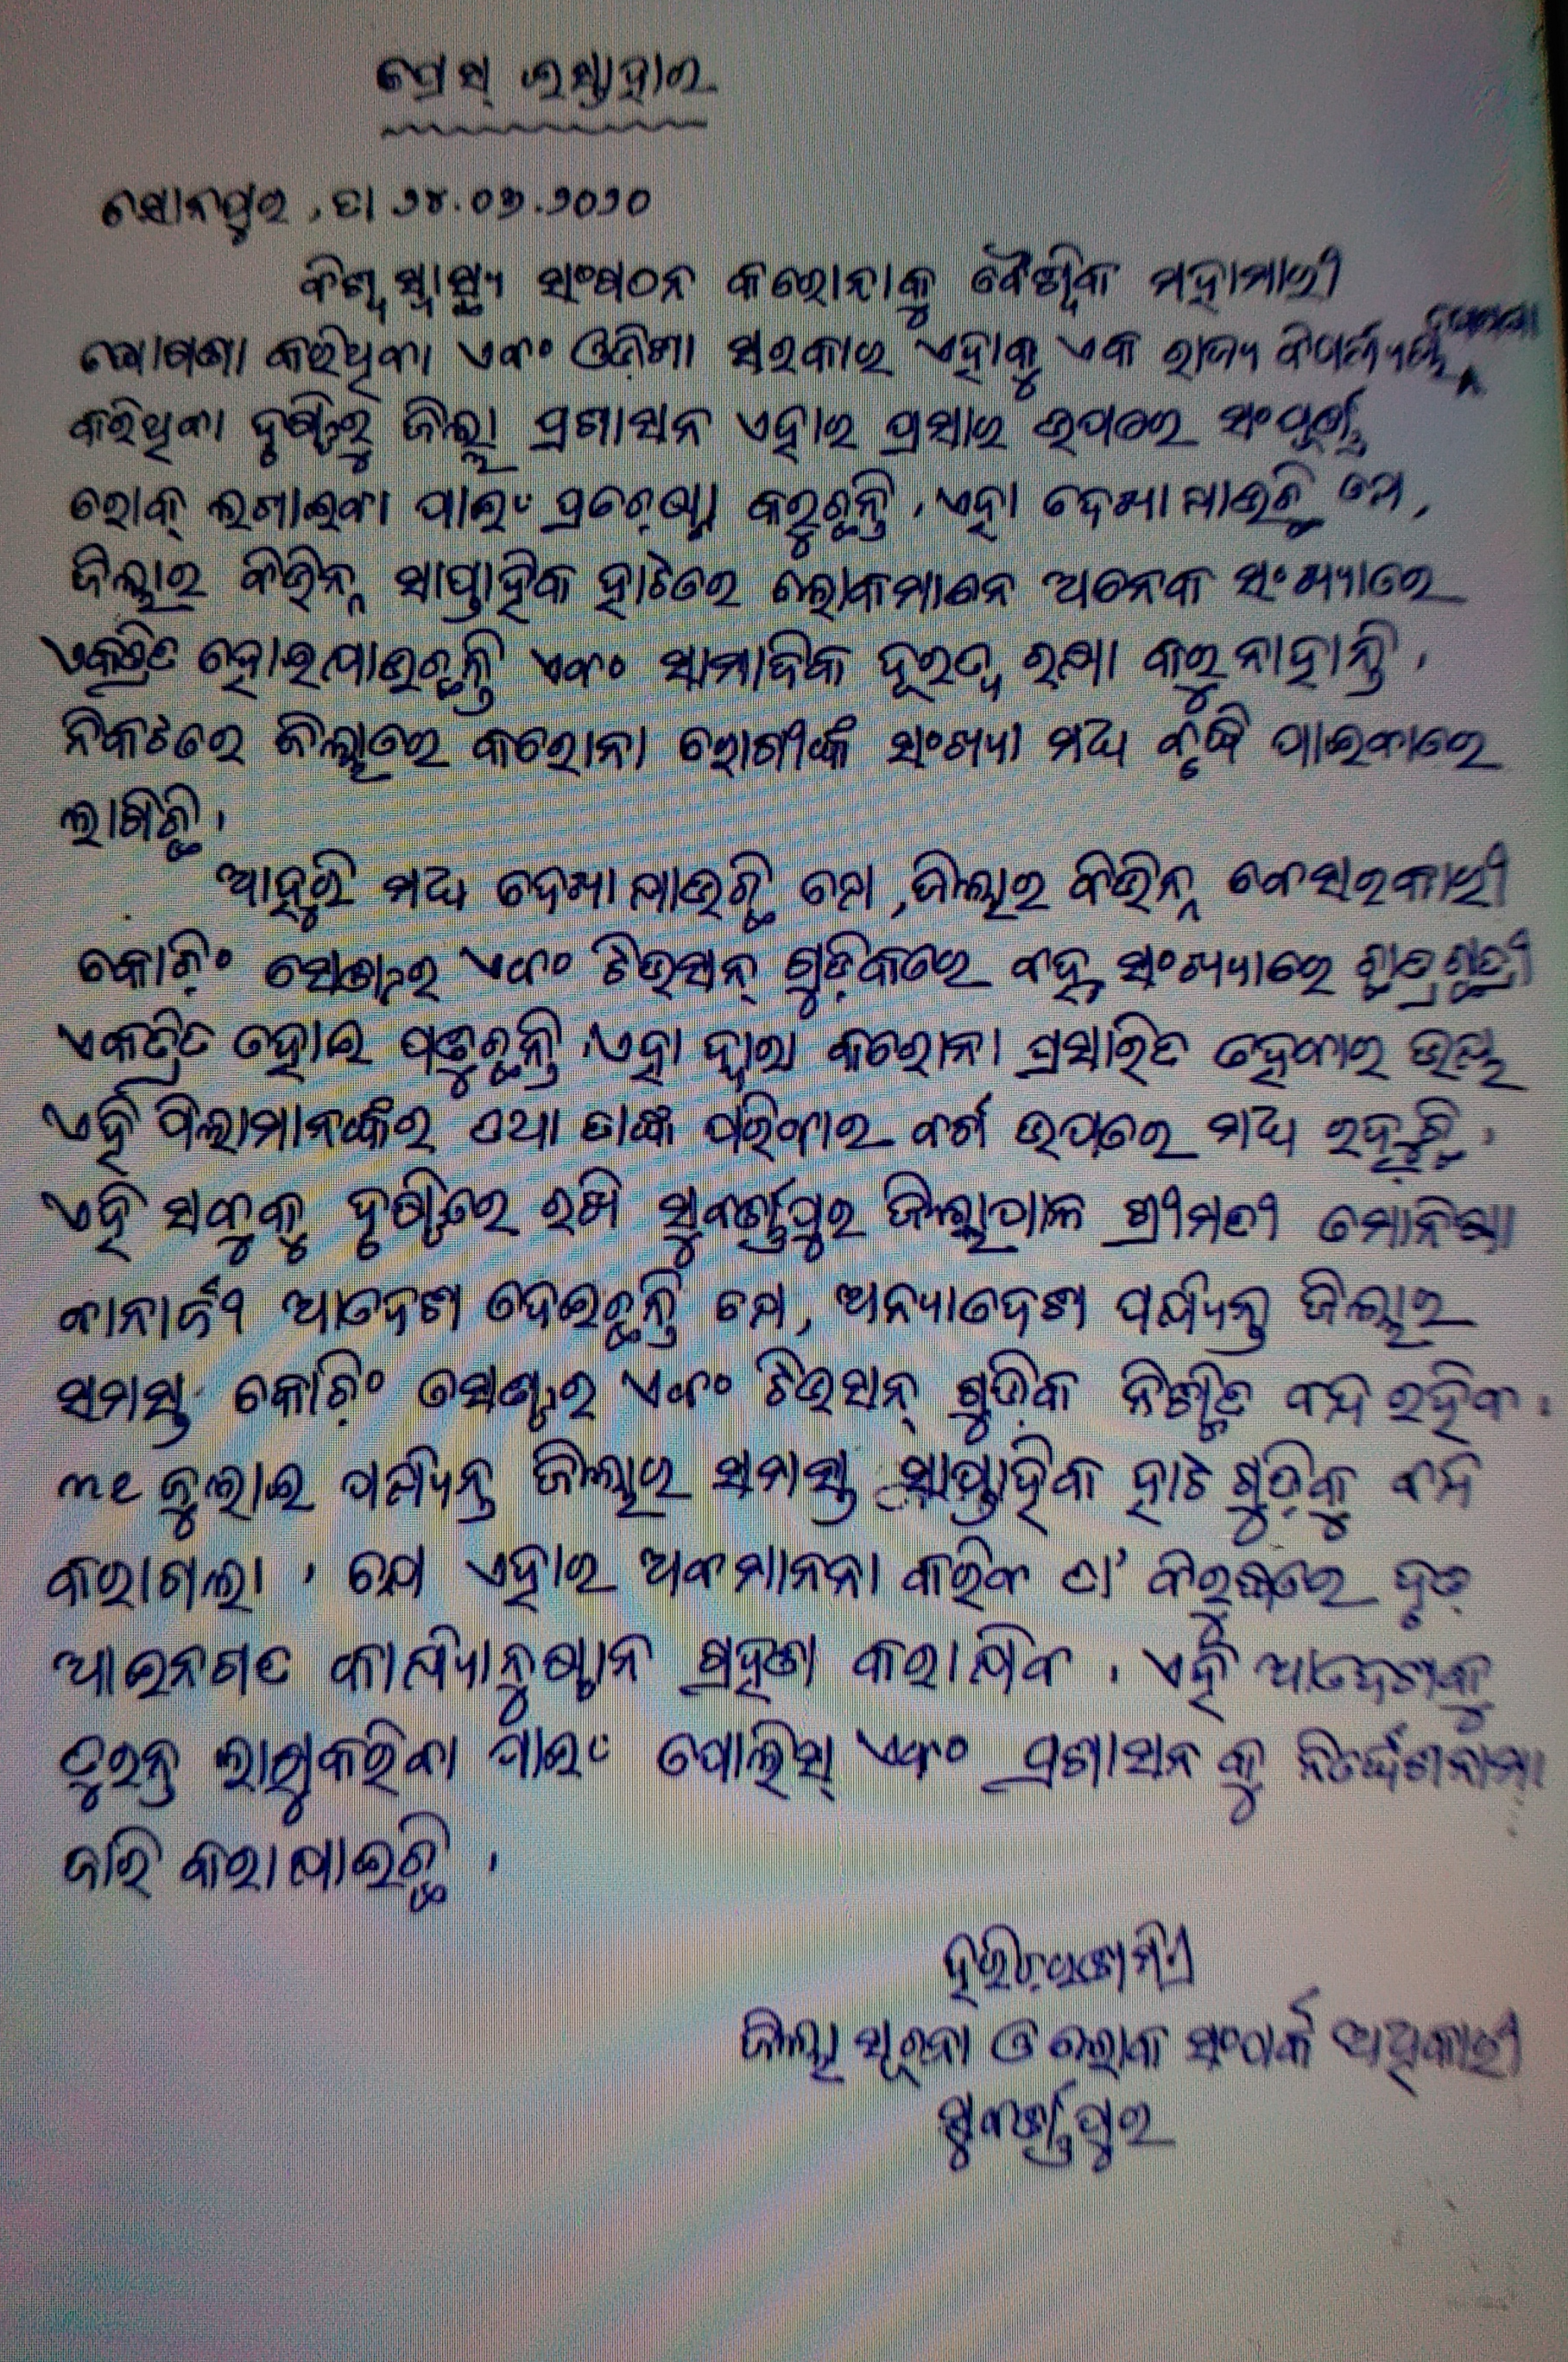 ପ୍ରେସ୍ ଇସ୍ତାହାର
ସୋନପୁର, ତା ୨୪.୦୬.୨୦୨୦
ବିଶ୍ୱ ସ୍ୱାସ୍ଥ୍ୟ ସଂଗଠନ କରୋନାକୁ ବୈଶ୍ୱିକ ମହାମାରୀ
ଘୋଷଣା କରିଥିବା ଏବଂ ଓଡ଼ିଶା ସରକାର ଏହାକୁ ଏକ ରାଜ୍ୟ ବିପର୍ଯ୍ୟୟ ଘୋଷଣା
କରିଥିବା ଦୃଷ୍ଟିରୁ ଜିଲ୍ଲା ପ୍ରଶାସନ ଏହାର ପ୍ରସାର ଉପରେ ସଂପୂର୍ଣ୍ଣ
ରୋକ୍ ଲଗାଇବା ପାଇଂ ପ୍ରଚେଷ୍ଟା କରୁଛନ୍ତି । ଏହା ଦେଖାଯାଉଛି ଯେ,
ଜିଲ୍ଲାର ବିଭିନ୍ନ ସାପ୍ତାହିକ ହାଟରେ ଲୋକମାନେ ଅନେକ ସଂଖ୍ୟାରେ
ଏକତ୍ରିତ ହୋଇଯାଉଛନ୍ତି ଏବଂ ସାମାଜିକ ଦୂରତ୍ୱ ରକ୍ଷା କରୁନାହାନ୍ତି ।
ନିକଟରେ ଜିଲ୍ଲାରେ କରୋନା ରୋଗୀଙ୍କ ସଂଖ୍ୟା ମଧ୍ୟ ବୃଦ୍ଧି ପାଇବାରେ
ଲାଗିଛି ।
ଆହୁରି ମଧ୍ୟ ଦେଖାଯାଉଛି ଯେ, ଜିଲ୍ଲାର ବିଭିନ୍ନ ବେସରକାରୀ
କୋଚିଂ ସେଣ୍ଟର ଏବଂ ଟିଉସନ୍ ଗୁଡ଼ିକରେ ବହୁ ସଂଖ୍ୟାରେ ଛାତ୍ରଛାତ୍ରୀ
ଏକତ୍ରିତ ହୋଇ ପଢୁଛନ୍ତି । ଏହା ଦ୍ୱାରା କରୋନା ପ୍ରସାରିତ ହେବାର ଭୟ
ଏହି ପିଲାମାନଙ୍କର ତଥା ତାଙ୍କ ପରିବାର ବର୍ଗ ଉପରେ ମଧ୍ୟ ରହୁଛି ।
ଏହି ସବୁକୁ ଦୃଷ୍ଟିରେ ରଖି ସୁବର୍ଣ୍ଣପୁର ଜିଲ୍ଲାପାଳ ଶ୍ରୀମତୀ ମୋନିଷା
ବାନାର୍ଜୀ ଆଦେଶ ଦେଇଛନ୍ତି ଯେ, ଅନ୍ୟାଦେଶ ପର୍ଯ୍ୟନ୍ତ ଜିଲ୍ଲାର
ସମସ୍ତ କୋଚିଂ ସେଣ୍ଟର ଏବଂ ଟିଉସନ୍ ଗୁଡ଼ିକ ନିଶ୍ଚିତ ବନ୍ଦ ରହିବ ।
୩୧ ଜୁଲାଇ ପର୍ଯ୍ୟନ୍ତ ଜିଲ୍ଲାର ସମସ୍ତ ସାପ୍ତାହିକ ହାଟ ଗୁଡ଼ିକୁ ବନ୍ଦ
କରାଗଲା । ଯେ ଏହାର ଅବମାନନା କରିବ ତା' ବିରୁଦ୍ଧରେ ଦୃଢ଼
ଆଇନଗତ କାର୍ଯ୍ୟାନୁଷ୍ଠାନ ଗ୍ରହଣ କରାଯିବ । ଏହି ଆଦେଶକୁ
ତୁରନ୍ତ ଲାଗୁକରିବା ପାଇଂ ପୋଲିସ୍ ଏବଂ ପ୍ରଶାସନ କୁ ନିର୍ଦ୍ଦେଶନାମା
ଜାରି କରାଯାଇଛି ।
ଜିଲ୍ଲା ସୂଚନା ଓ ଲୋକ ସଂପର୍କ ଅଧିକାରୀ
ସୁବର୍ଣ୍ଣପୁର